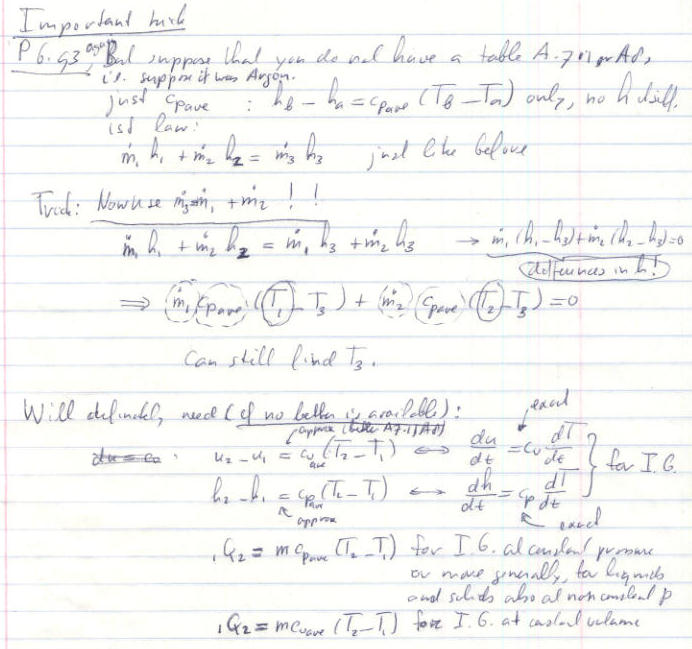 Important trick
P 6.93 again But suppose that you do not have a table A.7.1 or A8,
i.e. suppose it was Argon.
just cpave : h_B - h_a = c_pave (T_B - T_a) only, no h itself.
1st law:
ṁ₁ h₁ + ṁ₂ h₂ = ṁ₃ h₃ just like before
Trick: Now use ṁ₃ = ṁ₁ + ṁ₂ !!
ṁ₁ h₁ + ṁ₂ h₂ = ṁ₁ h₃ + ṁ₂ h₃ → ṁ₁ (h₁ - h₃) + ṁ₂ (h₂ - h₃) = 0
differences in h!
⇒ ṁ₁ c_pave (T₁ - T₃) + ṁ₂ c_pave (T₂ - T₃) = 0
Can still find T₃.
Will definitely need (if no better is available):
approx (better A7.1/A8) exact
du = cv : u₂ - u₁ = c_v ave (T₂ - T₁) ⟺ du/dt = c_v dT/dt
for I.G.
h₂ - h₁ = c_p ave (T₂ - T₁) ⟷ dh/dt = c_p dT/dt
approx exact
₁Q₂ = m c_pave (T₂ - T₁) for I.G. at constant pressure
or more generally, for liquids
and solids also at nonconstant p
₁Q₂ = m c_vave (T₂ - T₁) for I.G. at constant volume